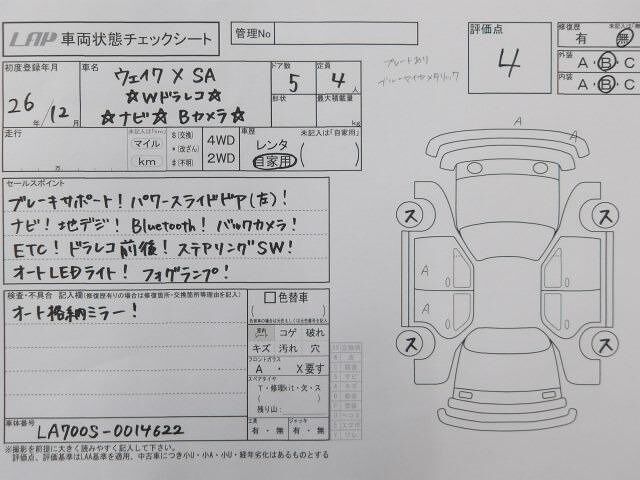 LAP 車両状態チェックシート
管理No
評価点 4
修復歴
有 無
外装 A・B・C
内装 A・B・C
初度登録年月 26年 12月
車名 ウェイク X SA
☆Wドラレコ☆
☆ナビ☆ Bカメラ☆
ドア数 5
定員 4人
形状
最大積載量 kg
走行
未記入は「km」
マイル
km
$(交換)
*(改ざん)
#(不明)
4WD
2WD
車歴 未記入は「自家用」
レンタ
自家用
セールスポイント
ブレーキサポート! パワースライドドア(左)!
ナビ! 地デジ! Bluetooth! バックカメラ!
ETC! ドラレコ前後! ステアリングSW!
オートLEDライト! フォグランプ!
検査・不具合 記入欄(修復歴有りの場合は修復箇所・交換箇所等理由を記入)
オート格納ミラー!
色替車
コゲ 破れ
キズ 汚れ 穴
フロントガラス
A ・ X要す
スペアタイヤ
T・修理kit・欠・ス
残り山:
工具
有・無
ジャッキ
有・無
車体番号
LA700S-0014622
※撮影を前提に大きく読みやすく記入して下さい。
評価点、評価基準はLAA基準を適用、中古車につき小U・小A・小U・経年劣化はあるものとする
A
A
ス
ス
A
A
ス
ス